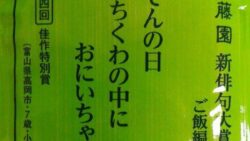 藤園 新俳句大賞
ご飯編
さんの日
ちくわの中に
おにいちゃ
四回 佳作特別賞
(富山県高岡市・7歳・小